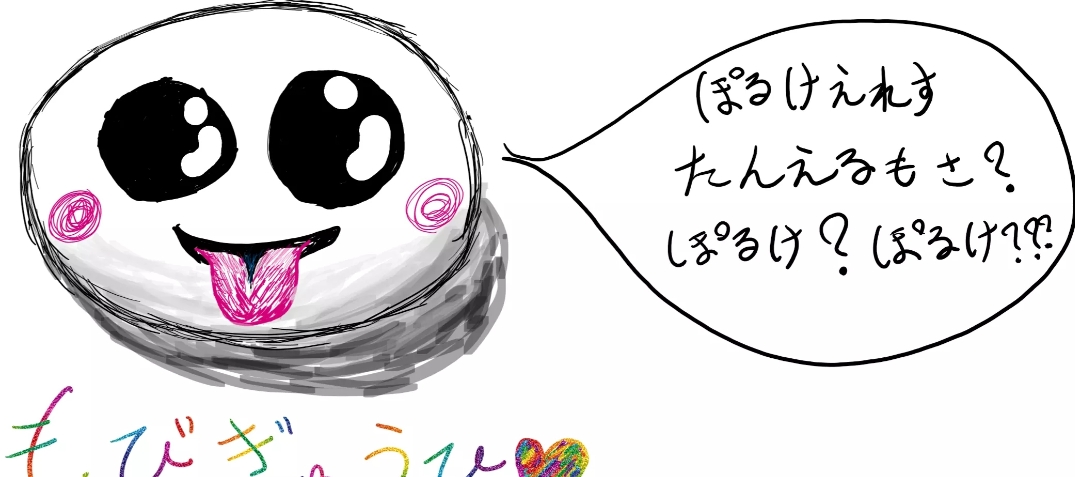 ぽるけえれす
たんえるもさ？
ぽるけ？ぽるけ？？？
も びぎゅうひ